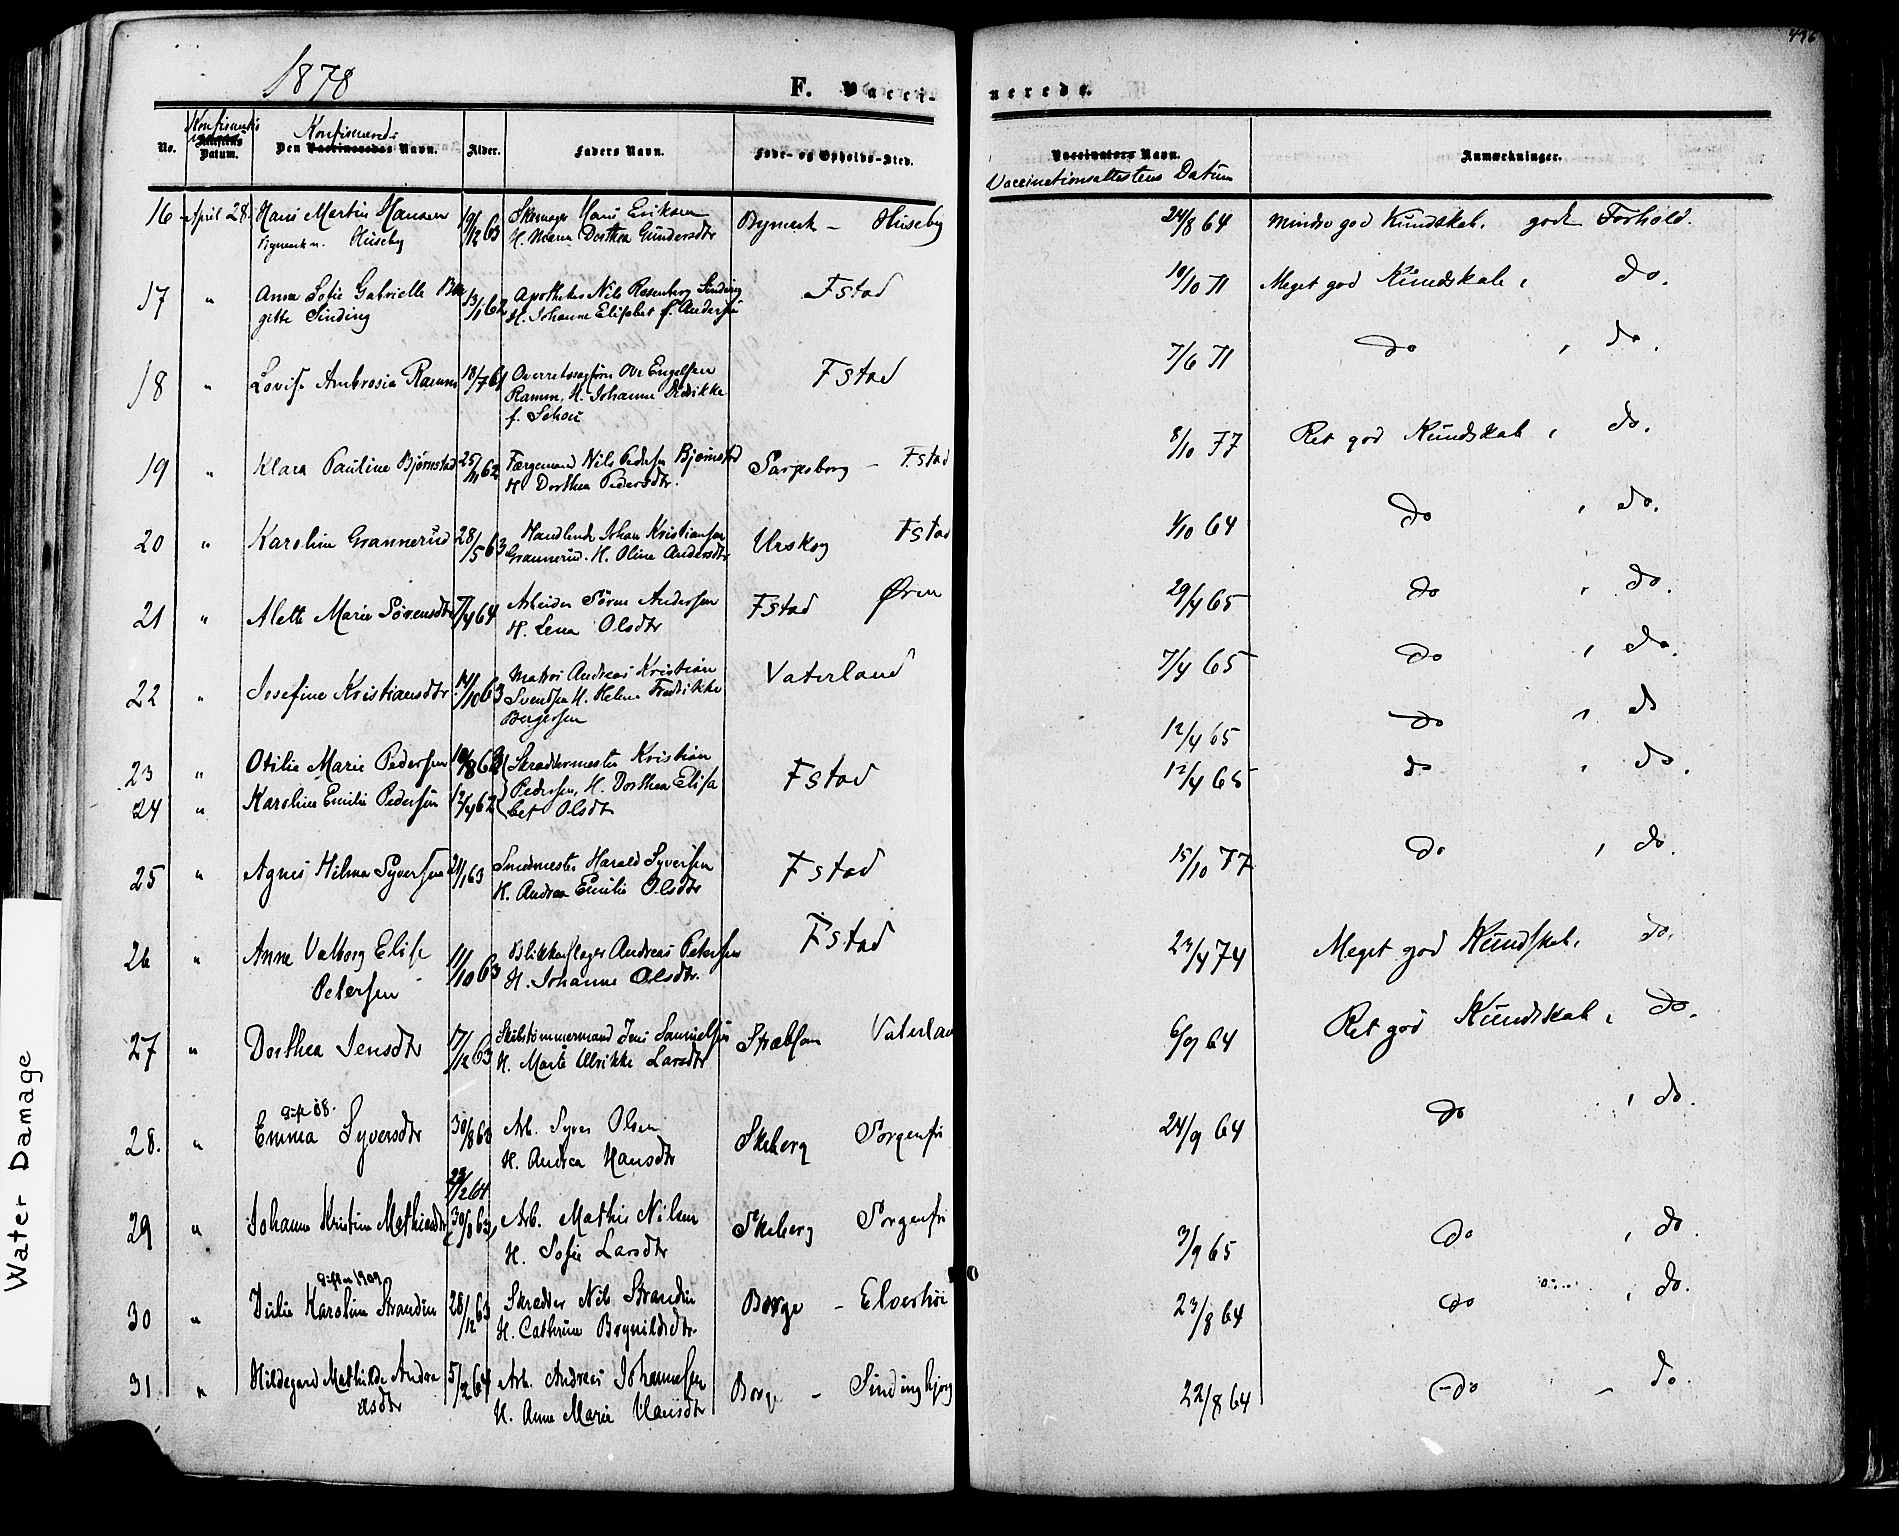 1878
F. Vacci-
nerede.
No. Datum. Konfirmand. Den Vaccineredes Navn. Alder. Faders Navn. Føde- og Opholds-Sted. Vaccinators Navn. Anmærkninger.
Vaccinationsattestens Datum
16 April 28. Hans Martin Hansen 19/12 63 Hans Eriksen Bymark - Huseby 24/8 64 Mindre god Kundskab. godt Forhold.
Bymark n. Huseby H. Maren Dorthea Gundersdtr
17 " Anna Sofie Gabrielle Bir 13/1 62 Apotheker Nils Rosenberg Sinding Fstad 10/10 71 Meget god Kundskab, do.
gitte Sinding H. Johanne Elisabet f. Andersen
18 " Lovise Ambrosia Ramm 18/7 61 Overretssagfører Ove Engelsen Fstad 7/6 71 do , do.
Ramm, H. Johanne Fredrikke
f. Schou
19 " Klara Pauline Bjørnstad 25/11 62 Færgemand Nils Pedersen Bjørnstad Sarpsborg - Fstad 8/10 77 Ret god Kundskab , do.
H. Dorthea Pedersdtr.
20 " Karoline Grannerud 28/5 63 Handlende Johan Kristiansen Urskog Fstad 1/10 64 do , do.
Grannerud. H. Oline Andersdtr
21 " Alette Marie Sørensdtr 7/4 64 Arbeider Søren Andersen Fstad Øren 29/4 65 do , do.
H. Lena Olsdtr
22 " Josefine Kristiansdtr 14/10 63 Matros Andreas Kristian Vaterland 7/4 65 do , do.
Svendsen H. Helene Fredrikke
Bergersen
23 " Otilie Marie Pedersen Skreddermester Kristian Fstad 12/4 65 do , do
24 " Karoline Emilie Pedersen 12/4 62 Pedersen, H. Dorthea Elisa 12/4 65 do , do.
bet Olsdtr
25 " Agnes Hilma Syversen 21/1 63 Smedmester Harald Syversen Fstad 15/10 77 do , do.
H. Andrea Emilie Olsdtr
26 " Anna Valborg Elise 11/10 63 Blikkenslager Andreas Petersen Fstad 23/4 74 Meget god Kundskab, do.
Petersen H. Johanne Olsdtr.
27 " Dorthea Jensdtr 17/12 63 Skibstømmermand Jens Samuelsen Vaterlan 6/9 64 Ret god Kundskab , do.
H. Marte Ulrikke Larsdtr
Gift 08.
28. " Emma Syversdtr 30/8 63 Arb. Syver Olsen Skeberg Sorgenfri 24/9 64 do , do.
H. Andrea Hansdtr
29 " Johanne Kristine Mathisdtr 30/8 63 Arb. Mathis Nilsen Skeberg Sorgenfri 3/9 65 do , do.
H. Sofie Larsdtr
Gift 1909
30 " Julie Karoline Strandin 28/12 63 Skrædder Nils Strandin Borge - Elverhøi 23/8 64 do , do.
H. Cathrine Bognildsdtr.
31 " Hildegard Mathilde Andre 5/2 64 Arb. Andreas Johannesen Borge - Sindingbjerg 22/8 64 do - do.
asdtr H. Anne Marie Hansdtr
Water Damage